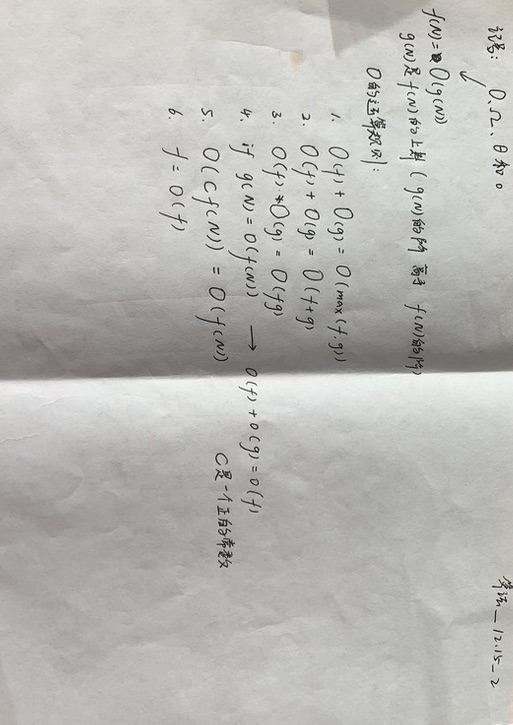 记号： O、Ω、θ 和 o
算法_12.15_2
f(N)= O(g(N))
g(N)是f(N)的上界（g(N)的阶 高于 f(N)的阶）
O的运算规则：
1. O(f) + O(g) = O(max(f,g))
2. O(f) + O(g) = O(f+g)
3. O(f)·*O(g) = O(fg)
4. if g(N) = O(f(N)) → O(f) + O(g) = O(f)
5. O(Cf(N)) = O(f(N)) C是一个正的常数
6. f = O(f)